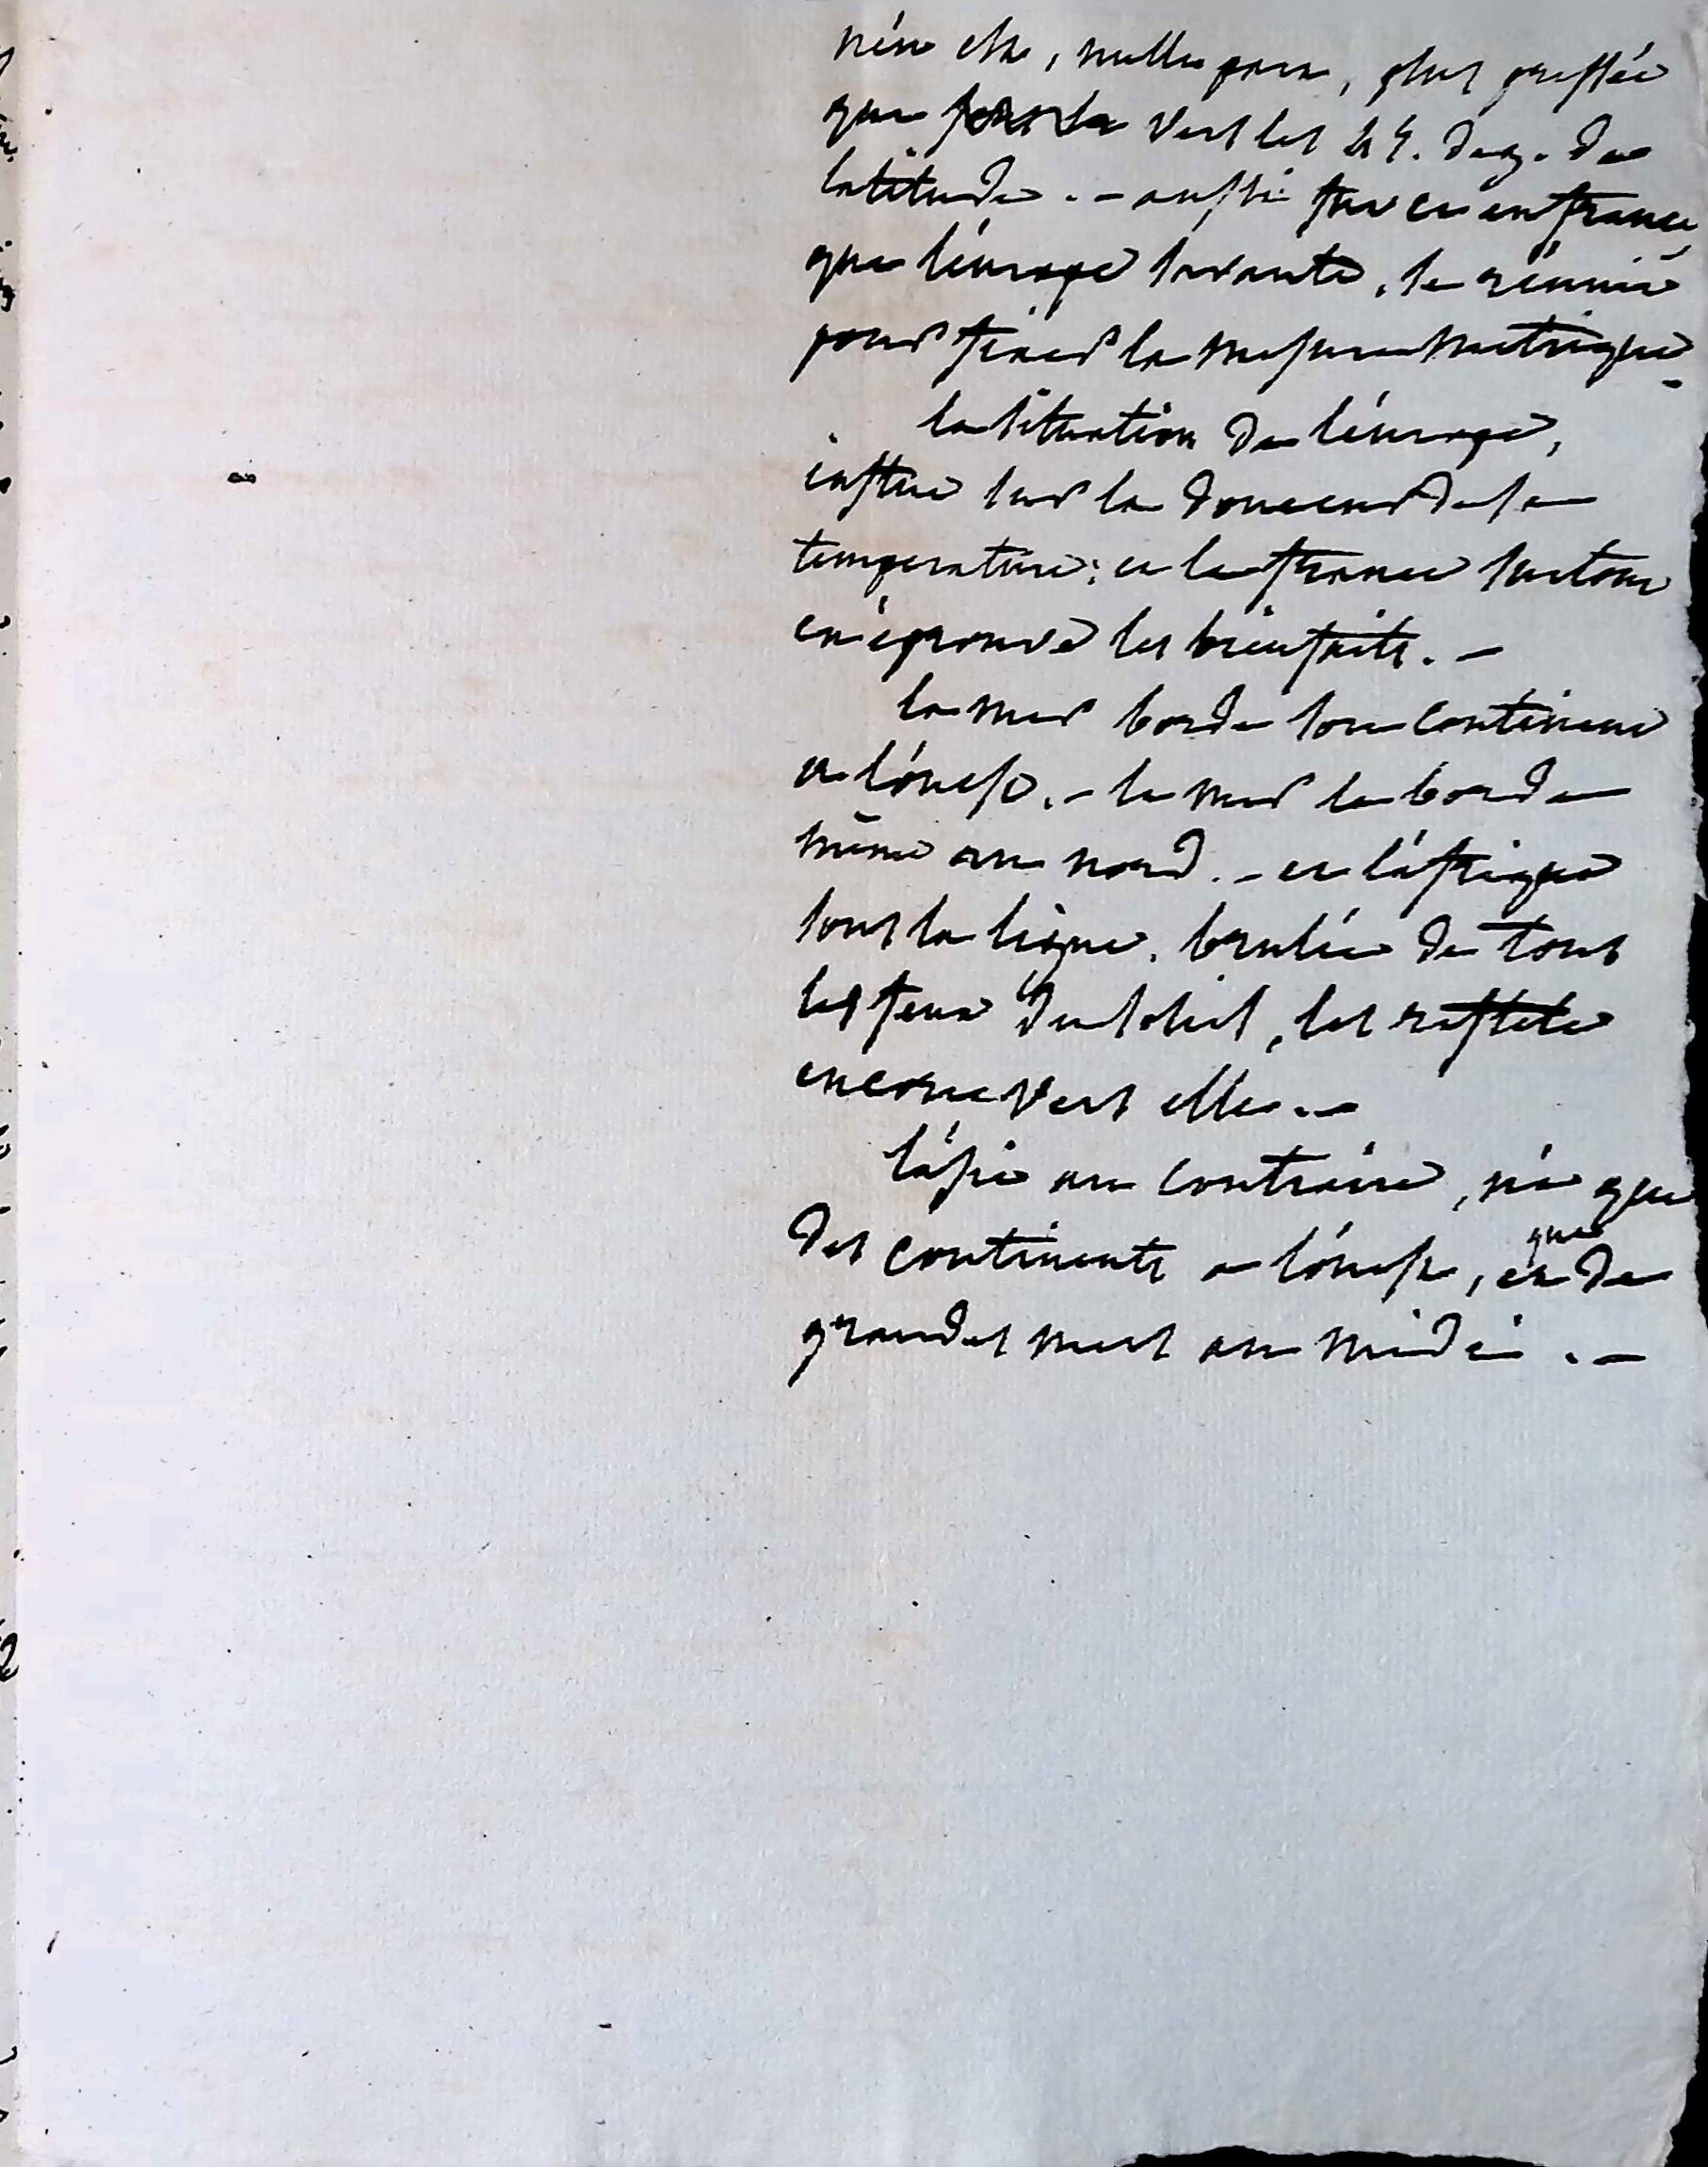 n'en est, nulle part, plus pressée
que vers les 45. deg. de
latitude. – aussi fut ce en france,
que l'éurope savante, se réunit
pour fixer la mesure métrique.
la situation de l'éurope,
influe sur la douceur de sa
temperature : et la france surtout
en éprouve les bienfaits. –
la mer borde son continent
a l'óuest. – la mer le borde
même au nord. – et l'áfrique
sous la ligne, brulée de tous
les feux du soleil, les reflete
encore vers elle. –
l'ásie au contraire, n'a que
des continents a l'óuest, et que de
grandes mers au midi. –